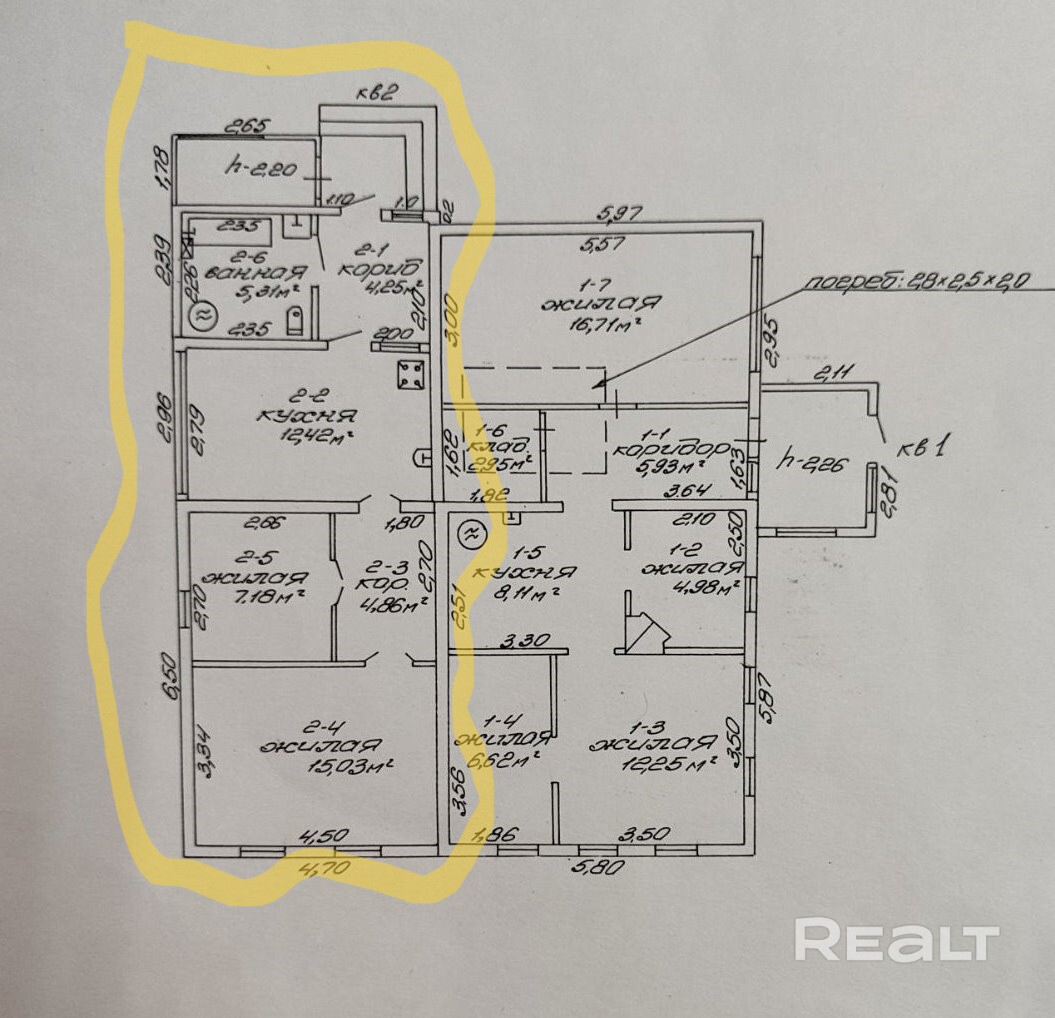 кв2
2,65
1,78
h-2,20
1.10
1.0
0.2
2,39
2.35
2-6
ванная
5,31м²
2,26
2.35
2-1
корид
4,25м²
2,10
2.00
5,97
5,57
1-7
жилая
16,71м²
3,00
погреб: 2,8×2,5×2,0
2,95
2,11
2,96
2,79
2-2
кухня
12,42м²
1-6
клад.
2,95м²
1,62
1,82
1-1
коридор
5,93м²
1,63
3,64
h-2,26
кв 1
2,81
2,66
2-5
жилая
7,18м²
2,70
1,80
2-3
кор.
4,86м²
2,70
1-5
кухня
8,11м²
2,51
3.30
2,10
2,50
1-2
жилая
4,98м²
6,50
2-4
жилая
15,03м²
3,34
4,50
4,70
1-4
жилая
6,62м²
3,56
1,86
1-3
жилая
12,25м²
3,50
5,87
3,50
5,80
REALT